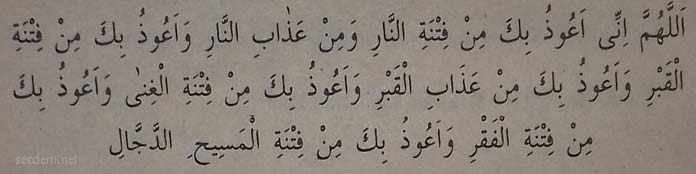 اَللّٰهُمَّ اِنِّى اَعُوذُ بِكَ مِنْ فِتْنَةِ النَّارِ وَمِنْ عَذَابِ النَّارِ وَاَعُوذُ بِكَ مِنْ فِتْنَةِ
الْقَبْرِ وَاَعُوذُ بِكَ مِنْ عَذَابِ الْقَبْرِ وَاَعُوذُ بِكَ مِنْ فِتْنَةِ الْغِنٰى وَاَعُوذُ بِكَ
مِنْ فِتْنَةِ الْفَقْرِ وَاَعُوذُ بِكَ مِنْ فِتْنَةِ الْمَسِيحِ الدَّجَّالِ
secdem.net